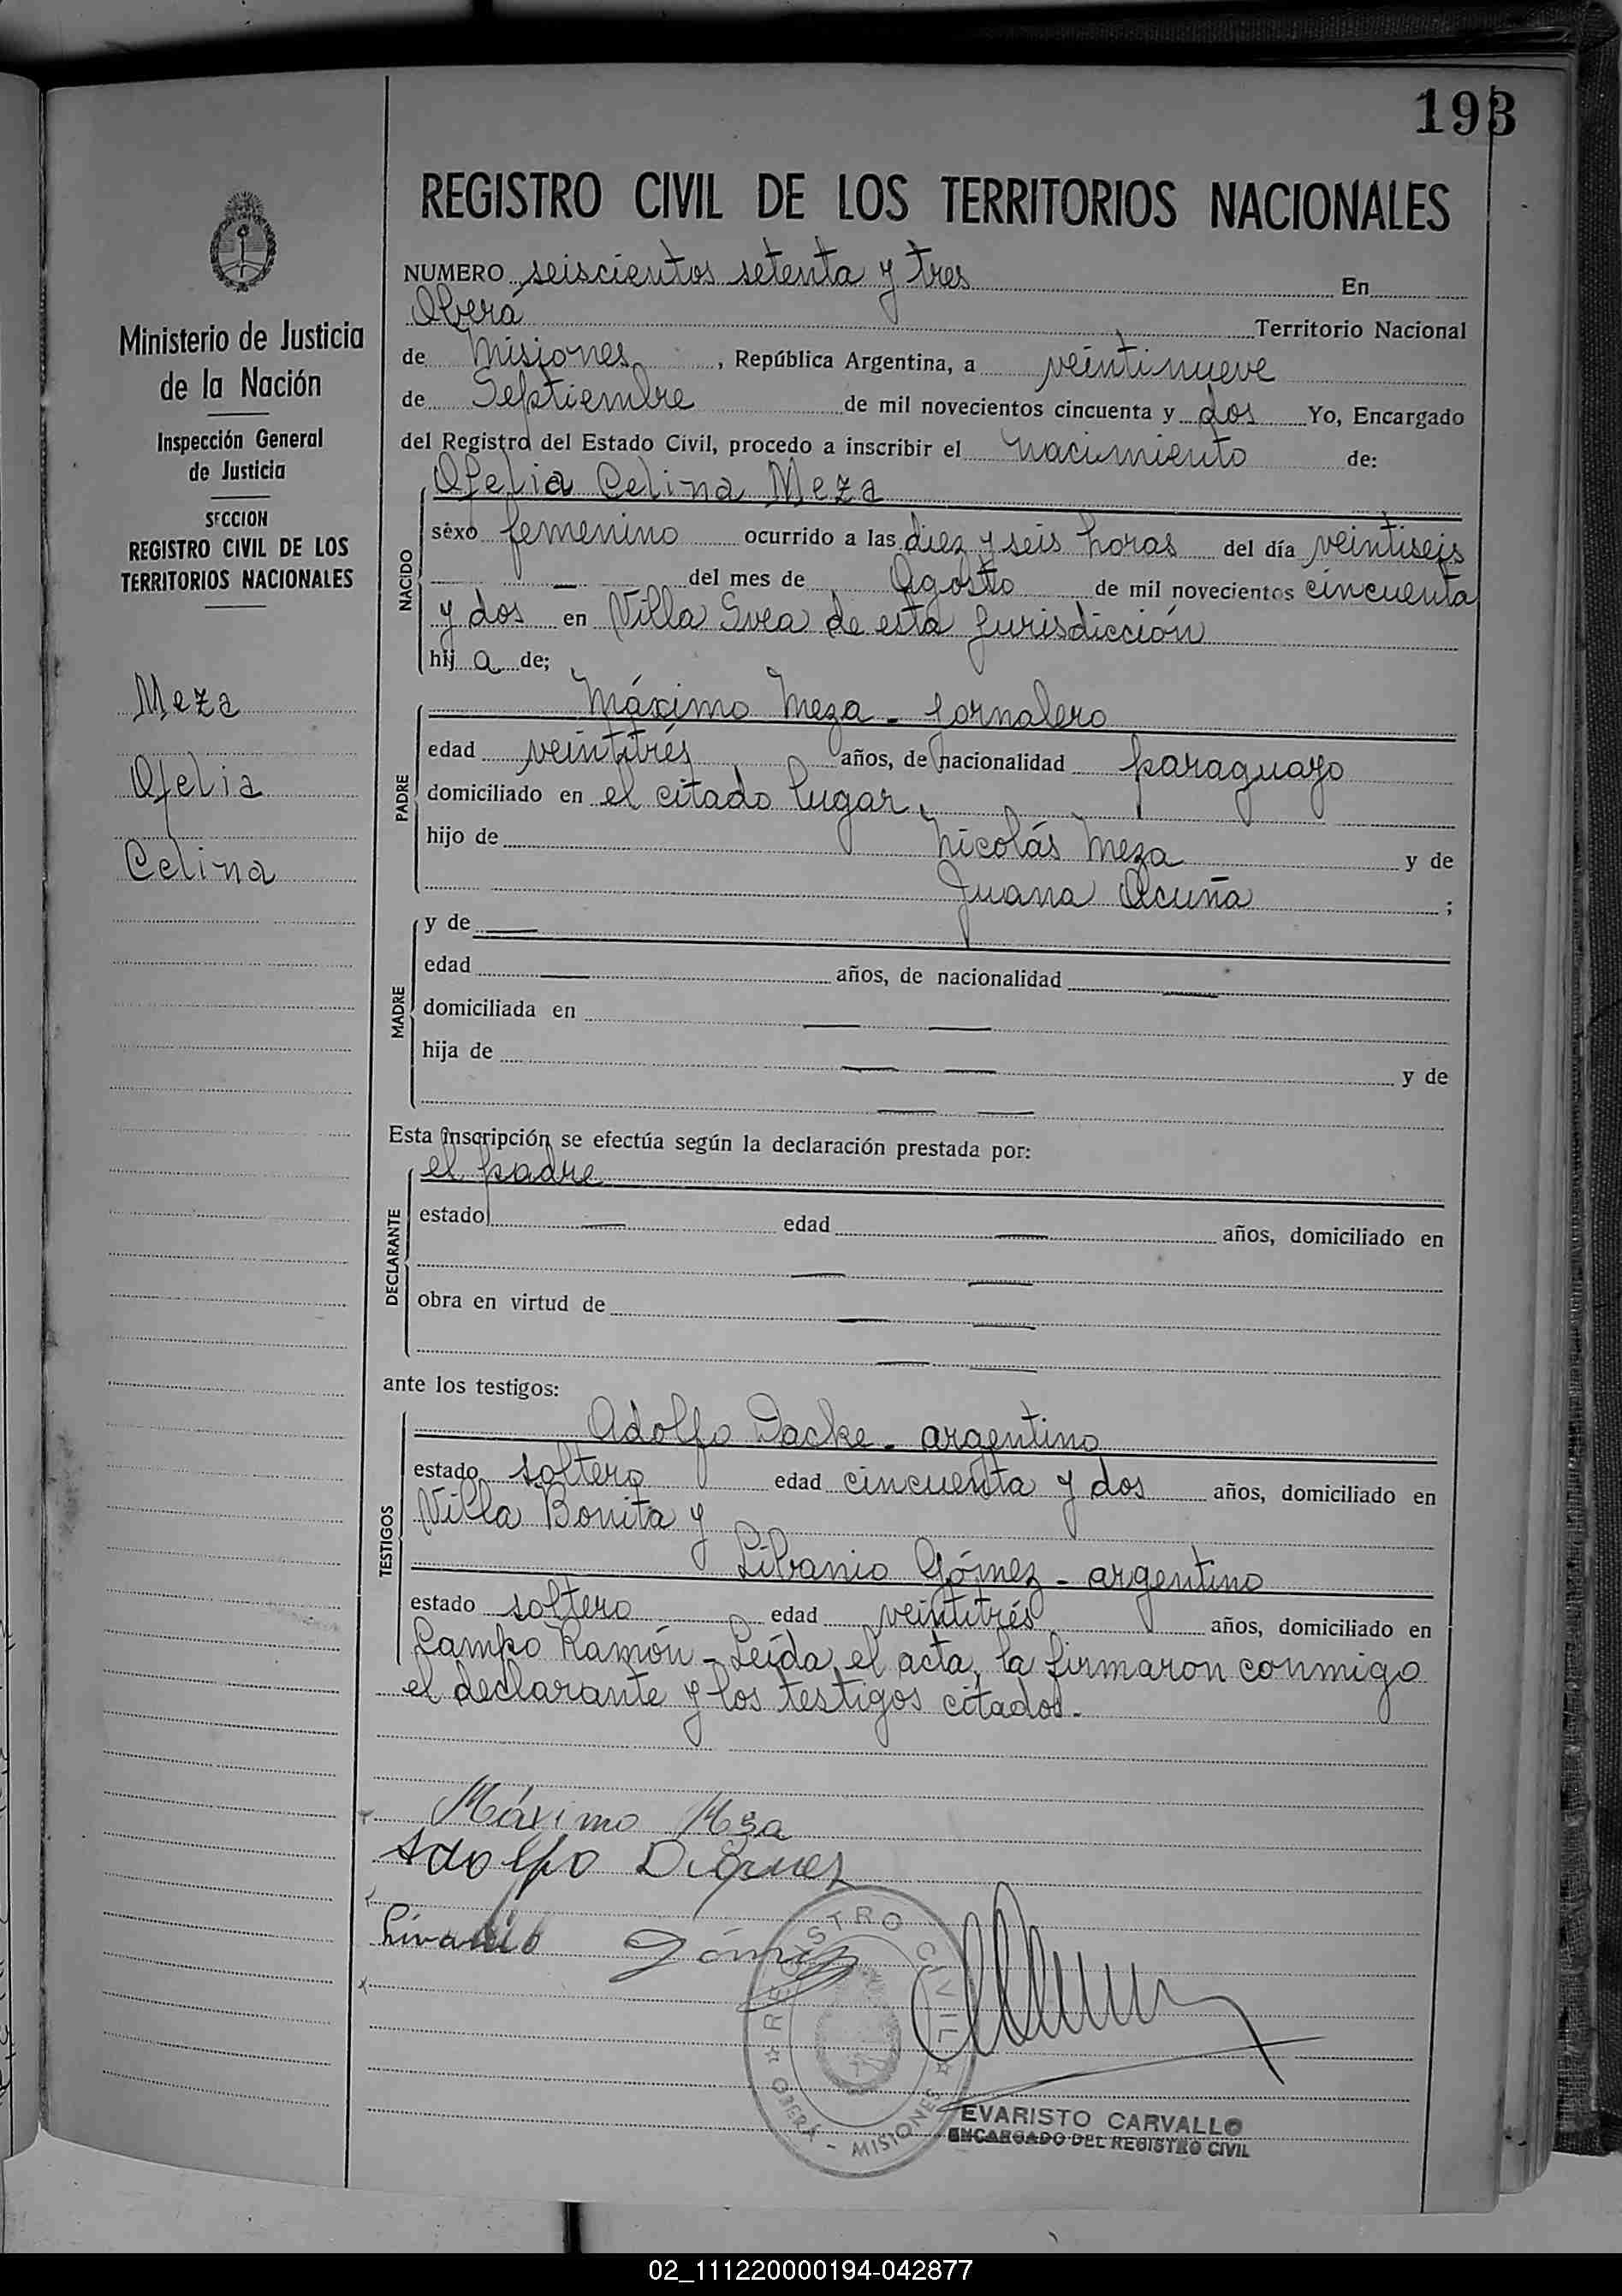 193
REGISTRO CIVIL DE LOS TERRITORIOS NACIONALES
Ministerio de Justicia
de la Nación
Inspección General
de Justicia
SECCION
REGISTRO CIVIL DE LOS
TERRITORIOS NACIONALES
Meza
Ofelia
Celina
NUMERO seiscientos setenta y tres En
Oberá Territorio Nacional
de Misiones, República Argentina, a veintinueve
de Septiembre de mil novecientos cincuenta y dos Yo, Encargado
del Registro del Estado Civil, procedo a inscribir el nacimiento de:
Ofelia Celina Meza
NACIDO
sexo femenino ocurrido a las diez y seis horas del día veintiseis
— del mes de Agosto de mil novecientos cincuenta
y dos en Villa Svea de esta jurisdicción
hij a de;
PADRE
Máximo Meza - Jornalero
edad veintitrés años, de nacionalidad paraguayo
domiciliado en el citado lugar,
hijo de Nicolás Meza y de
Juana Acuña ;
MADRE
y de —
edad — años, de nacionalidad —
domiciliada en — —
hija de — — y de
— —
Esta inscripción se efectúa según la declaración prestada por:
el padre
DECLARANTE
estado — edad — años, domiciliado en
— —
obra en virtud de — —
— —
ante los testigos:
TESTIGOS
Adolfo Dacke - argentino
estado soltero edad cincuenta y dos años, domiciliado en
Villa Bonita y
Libanio Gómez - argentino
estado soltero edad veintitrés años, domiciliado en
Campo Ramón - Leída el acta, la firmaron conmigo
el declarante y los testigos citados.-
Máximo
Adolfo
Gómez
REGISTRO CIVIL
OBERÁ - MISIONES
EVARISTO CARVALLO
ENCARGADO DEL REGISTRO CIVIL
02_111220000194-042877